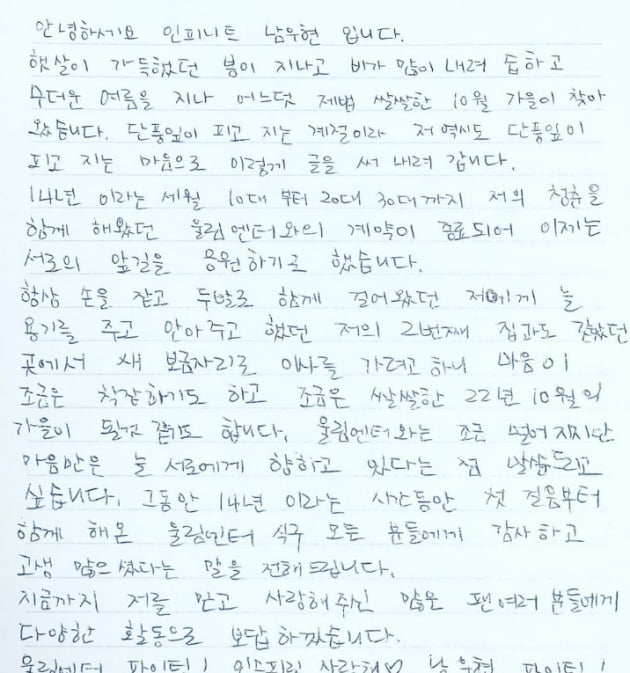 안녕하세요 인피니트 남우현 입니다.
햇살이 가득했던 봄이 지나고 비가 많이 내려 습하고
무더운 여름을 지나 어느덧 제법 쌀쌀한 10월 가을이 찾아
왔습니다. 단풍잎이 피고 지는 계절이라 저 역시도 단풍잎이
피고 지는 마음으로 이렇게 글을 써 내려 갑니다.
14년 이라는 세월 10대 부터 20대 30대까지 저의 청춘을
함께 해왔던 울림엔터와의 계약이 종료되어 이제는
서로의 앞길을 응원하기로 했습니다.
항상 손을 잡고 두발로 함께 걸어왔던 저에게 늘
용기를 주고 안아주고 했던 저의 2번째 집과도 같았던
곳에서 새 보금자리로 이사를 가려고 하니 마음이
조금은 착잡하기도 하고 조금은 쌀쌀한 22년 10월의
가을이 될것 같기도 합니다. 울림엔터와는 조금 멀어지지만
마음만은 늘 서로에게 향하고 있다는 점 말씀드리고
싶습니다. 그동안 14년 이라는 시간동안 첫 걸음부터
함께 해온 울림엔터 식구 모든 분들에게 감사하고
고생 많으셨다는 말을 전해 드립니다.
지금까지 저를 믿고 사랑해주신 많은 팬여러분들에게
다양한 활동으로 보답하겠습니다.
울림엔터 파이팅! 인스피릿 사랑해♡ 남우현 파이팅!